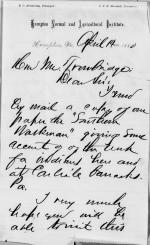 Hampton Normal and Agricultural Institute.
Hampton, Va. April 14
Hon Mr. Trowbridge
Dear Sir:
I send
by mail a copy of our
paper the Southern
Workman" giving some
account of the work
for Indians here and
at Carlisle Barracks
Pa.
I very much
hope you will be
able to visit this